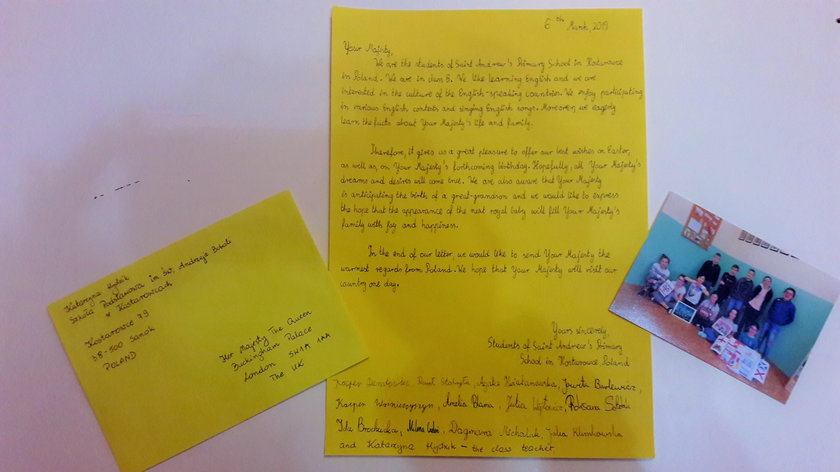 6th March, 2019
Your Majesty,
We are the students of Saint Andrew's Primary School in Kostarowce
in Poland. We are in class 8. We like learning English and we are
interested in the culture of the English-speaking countries. We enjoy participating
in various English contests and singing English songs. Moreover, we eagerly
learn the facts about Your Majesty's life and family.
Therefore, it gives us a great pleasure to offer our best wishes on Easter,
as well as, on Your Majesty's forthcoming birthday. Hopefully, all Your Majesty's
dreams and desires will come true. We are also aware that Your Majesty
is anticipating the birth of a great-grandson and we would like to express
the hope that the appearance of the next royal baby will fill Your Majesty's
family with joy and happiness.
In the end of our letter, we would like to send Your Majesty the
warmest regards from Poland. We hope that Your Majesty will visit our
country one day.
Yours sincerely,
Students of Saint Andrew's Primary
School in Kostarowce Poland
Kacper
Kacper Amelia Julia Wójtowicz, Roksana
Ida Milena Dagmara Michalak, Julia Klimkowska
and Katarzyna Hydzik – the class teacher
Katarzyna Hydzik
Szkoła Podstawowa im św. Andrzeja Boboli
w Kostarowcach
Kostarowce 79
38-500 Sanok
POLAND
Her Majesty The Queen
Buckingham Palace
London SW1A 1AA
The UK